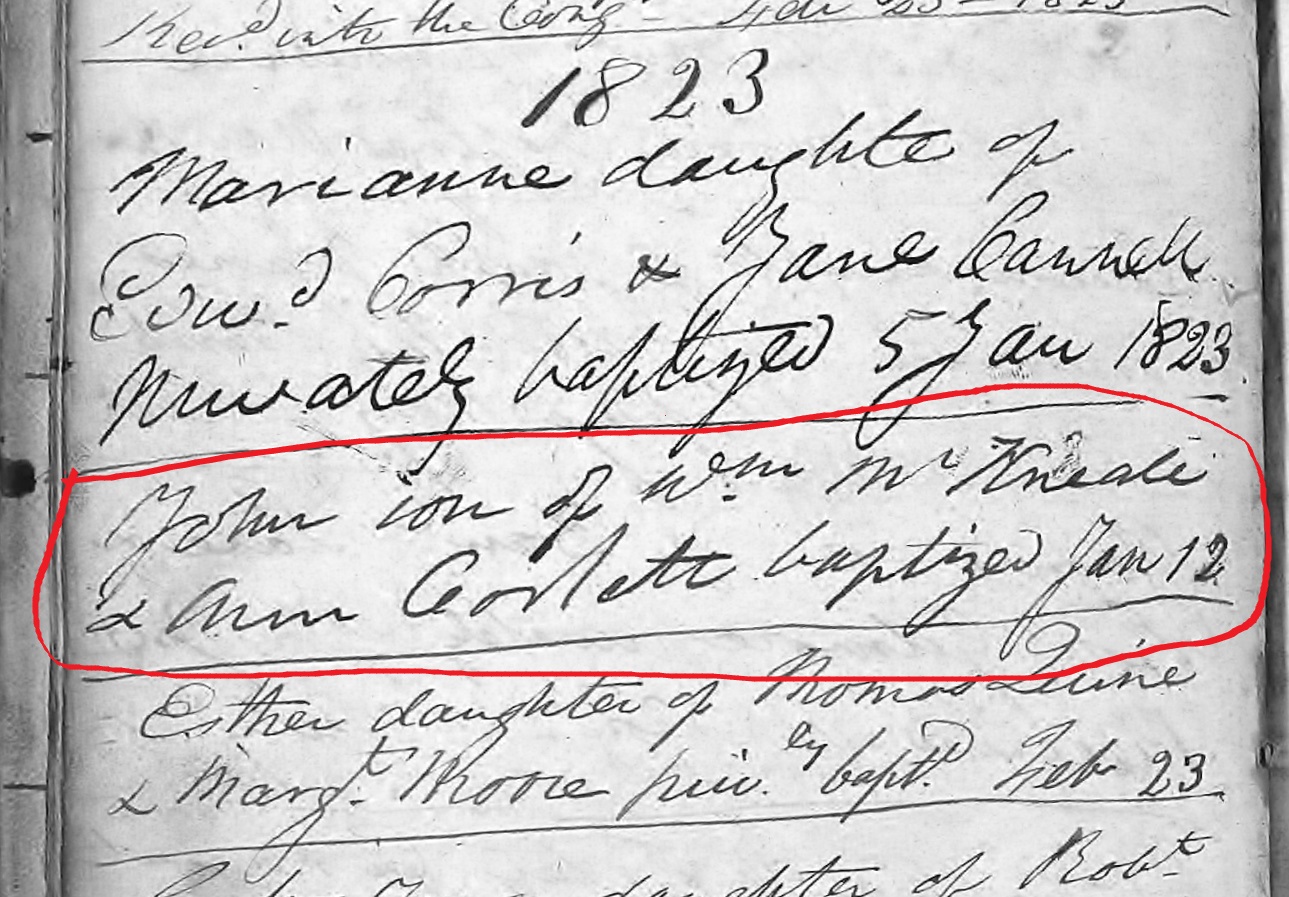 Rec.d into the Cong.n Feb 23 - 1823
1823
Marianne daughte of
Edw.d Corris & Jane Cannell
privately baptized 5 Jan 1823
John son of Wm Mc Kneale
& Ann Corlett baptized Jan 12
Esther daughter of Thomas Quine
& Marg.t Moore priv.ly bapt.d Feb 23
daughter of Robt